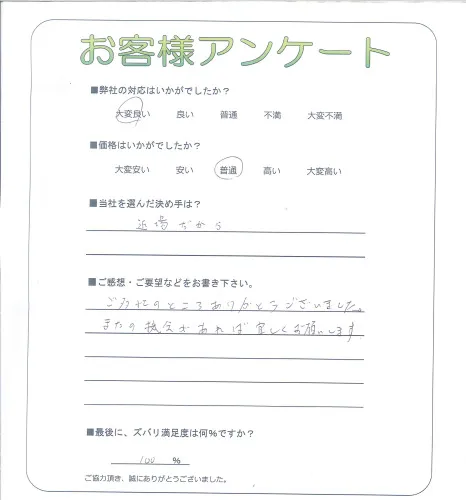 お客様アンケート
■弊社の対応はいかがでしたか？
大変良い 良い 普通 不満 大変不満
■価格はいかがでしたか？
大変安い 安い 普通 高い 大変高い
■当社を選んだ決め手は？
近場だから
■ご感想・ご要望などをお書き下さい。
ご多忙のところありがとうございました。
またの機会があれば宜しくお願いします
■最後に、ズバリ満足度は何%ですか？
100 %
ご協力頂き、誠にありがとうございました。